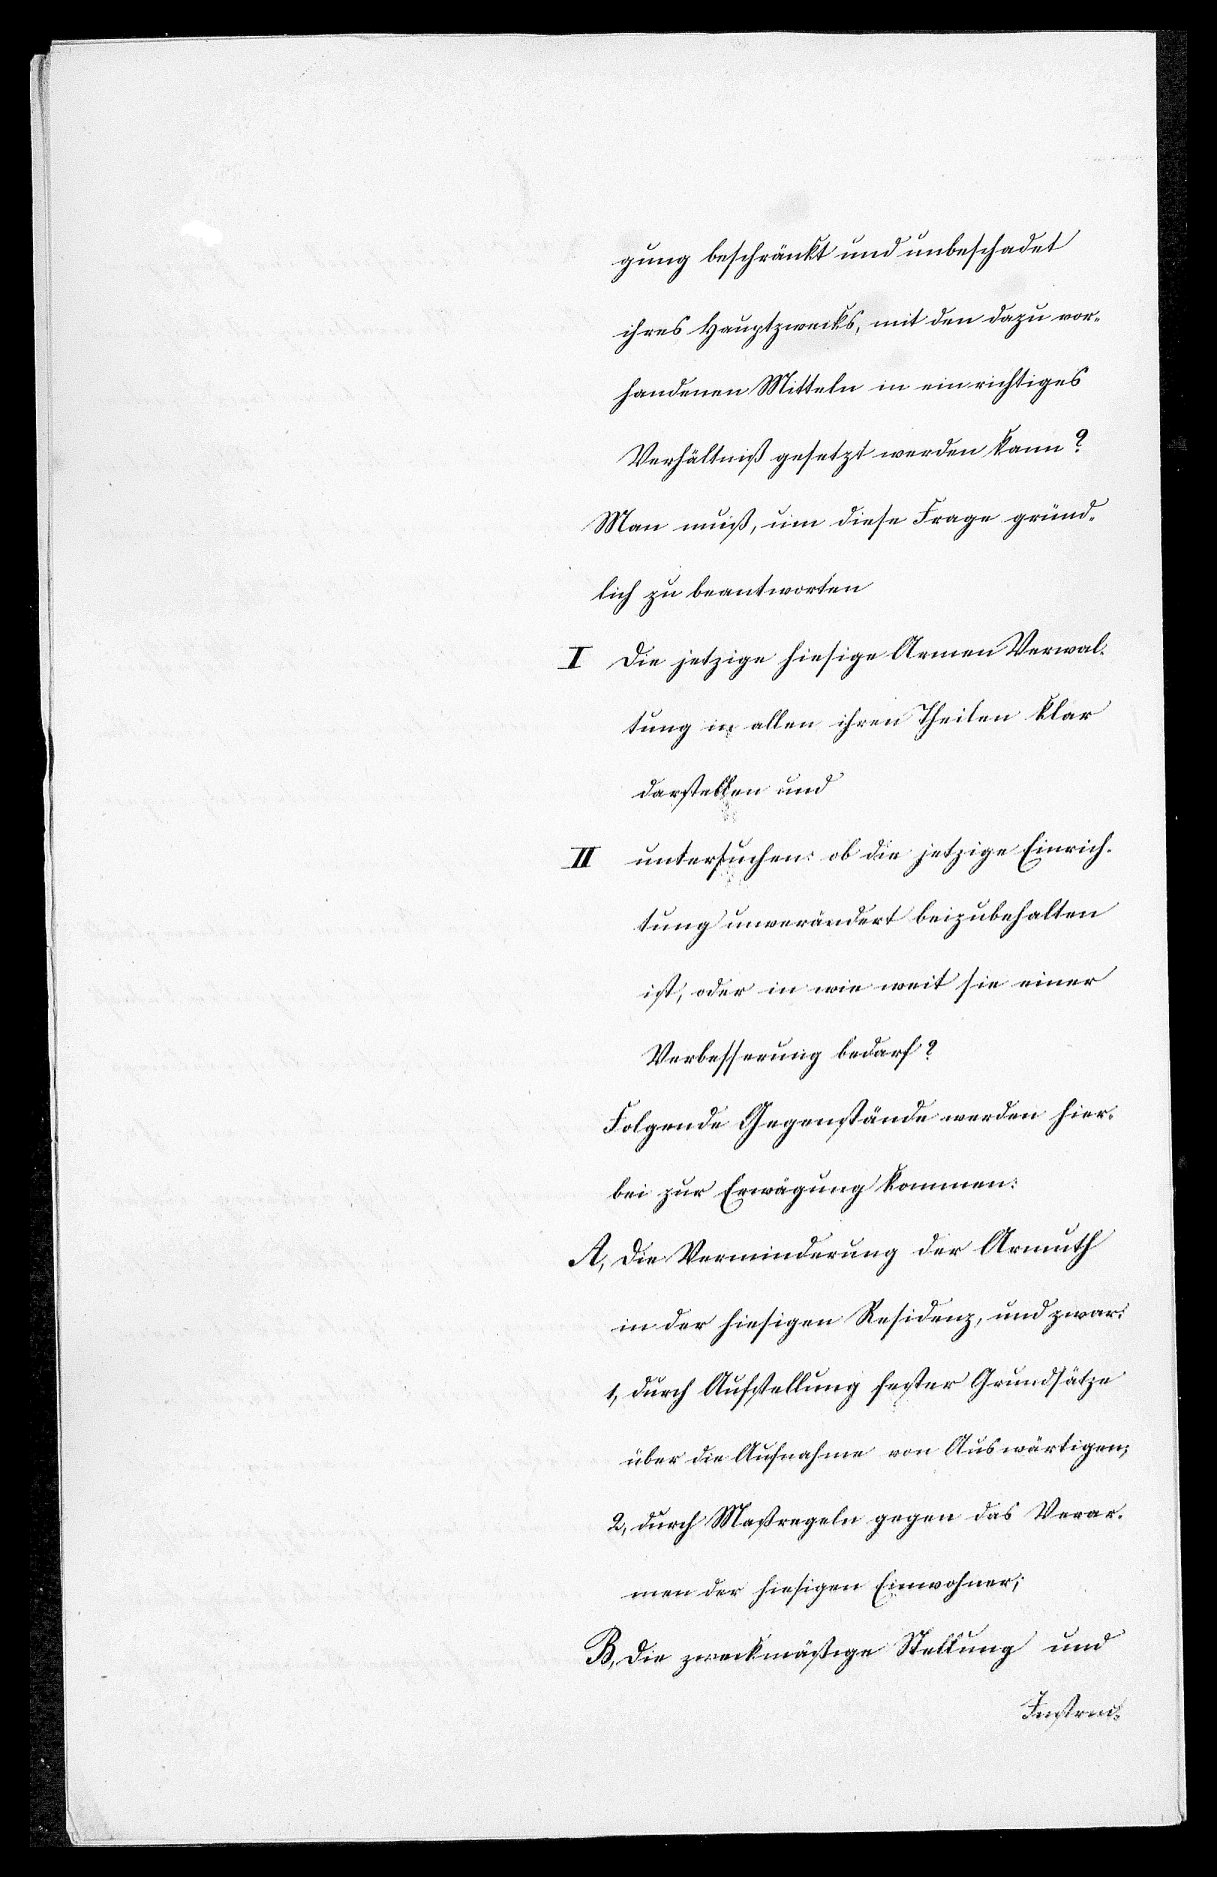 gung beschränkt und unbeschadet
ihres Hauptzwecks, mit den dazu vor-
handenen Mitteln in ein richtiges
Verhältniß gesetzt werden kann?
Man muß, um diese Frage gründ-
lich zu beantworten
I die jetzige hiesige Armen Verwal-
tung in allen ihren Theilen klar
darstellen und
II untersuchen: ob die jetzige Einrich-
tung unverändert beizubehalten
ist, oder in wie weit sie einer
Verbesserung bedarf?
Folgende Gegenstände werden hier-
bei zur Erwägung kommen:
A, die Verminderung der Armuth
in der hiesigen Residenz, und zwar:
1, durch Aufstellung fester Grundsätze
über die Aufnahme von Auswärtigen;
2, durch Maßregeln gegen das Verar-
men der hiesigen Einwohner;
B, die zweckmäßige Stellung und
Instruc-